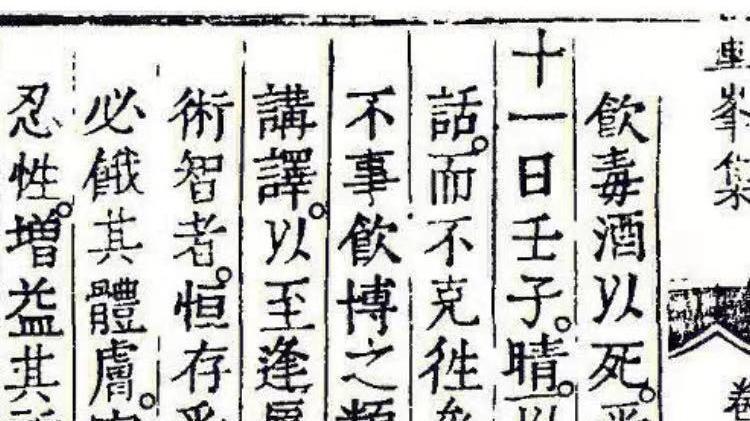 峯集
卷
飲毒酒以死。
十一日壬子。晴。以
話。而不克徃
不事飲博之類
講譯。以至逢
術智者。恒存乎
必餓其體膚。
忍性。增益其所